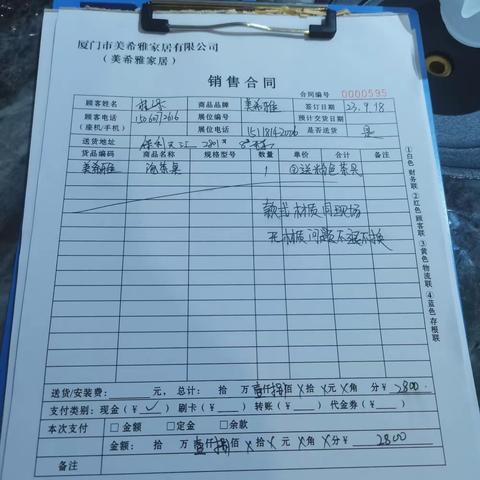 厦门市美希雅家居有限公司
（美希雅家居）
销售合同
合同编号 0000595
顾客姓名 商品品牌 美希雅 签订日期 23.9.18
顾客电话（座机/手机） 展位编号 预计交货日期
展位电话 是否送货 是
送货地址
货品编码 商品名称 规格型号 数量 单价 合计 备注
美希雅 泡茶桌 1 送粉色茶具
款式材质同现场
无材质问题不退不换
①白色 财务联 ②红色 顾客联 ③黄色 物流联 ④蓝色 存根联
送货/安装费： 元，总计： 拾 万 仟 佰 拾 元 角 分￥ 2800
支付类别：现金（✓）刷卡（ ）转账（ ）代金券（ ）
本次支付 □金额 □定金 □余款
金额： 拾 万 仟 佰 拾 元 角 分￥ 2800
备注